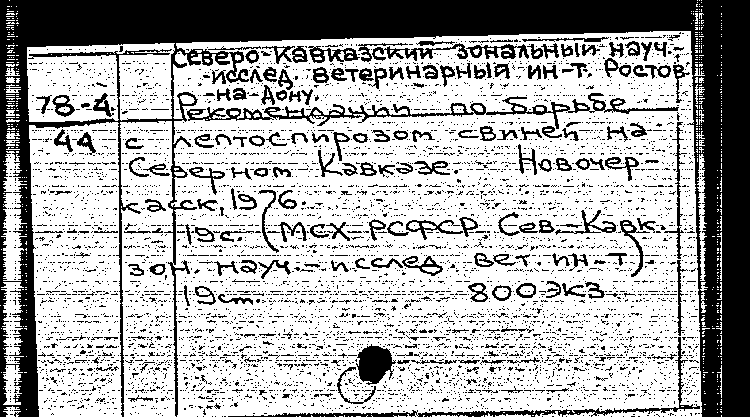 Северо-Кавказский зональный науч.-
-исслед. ветеринарный ин-т. Ростов-
-на-Дону.
78-4 Рекомендации по борьбе
44 с лептоспирозом свиней на
Северном Кавказе. Новочер-
касск, 1976.
19с. (МСХ РСФСР. Сев.-Кавк.
зон. науч.-исслед. вет. ин-т).
19см. 800 экз.